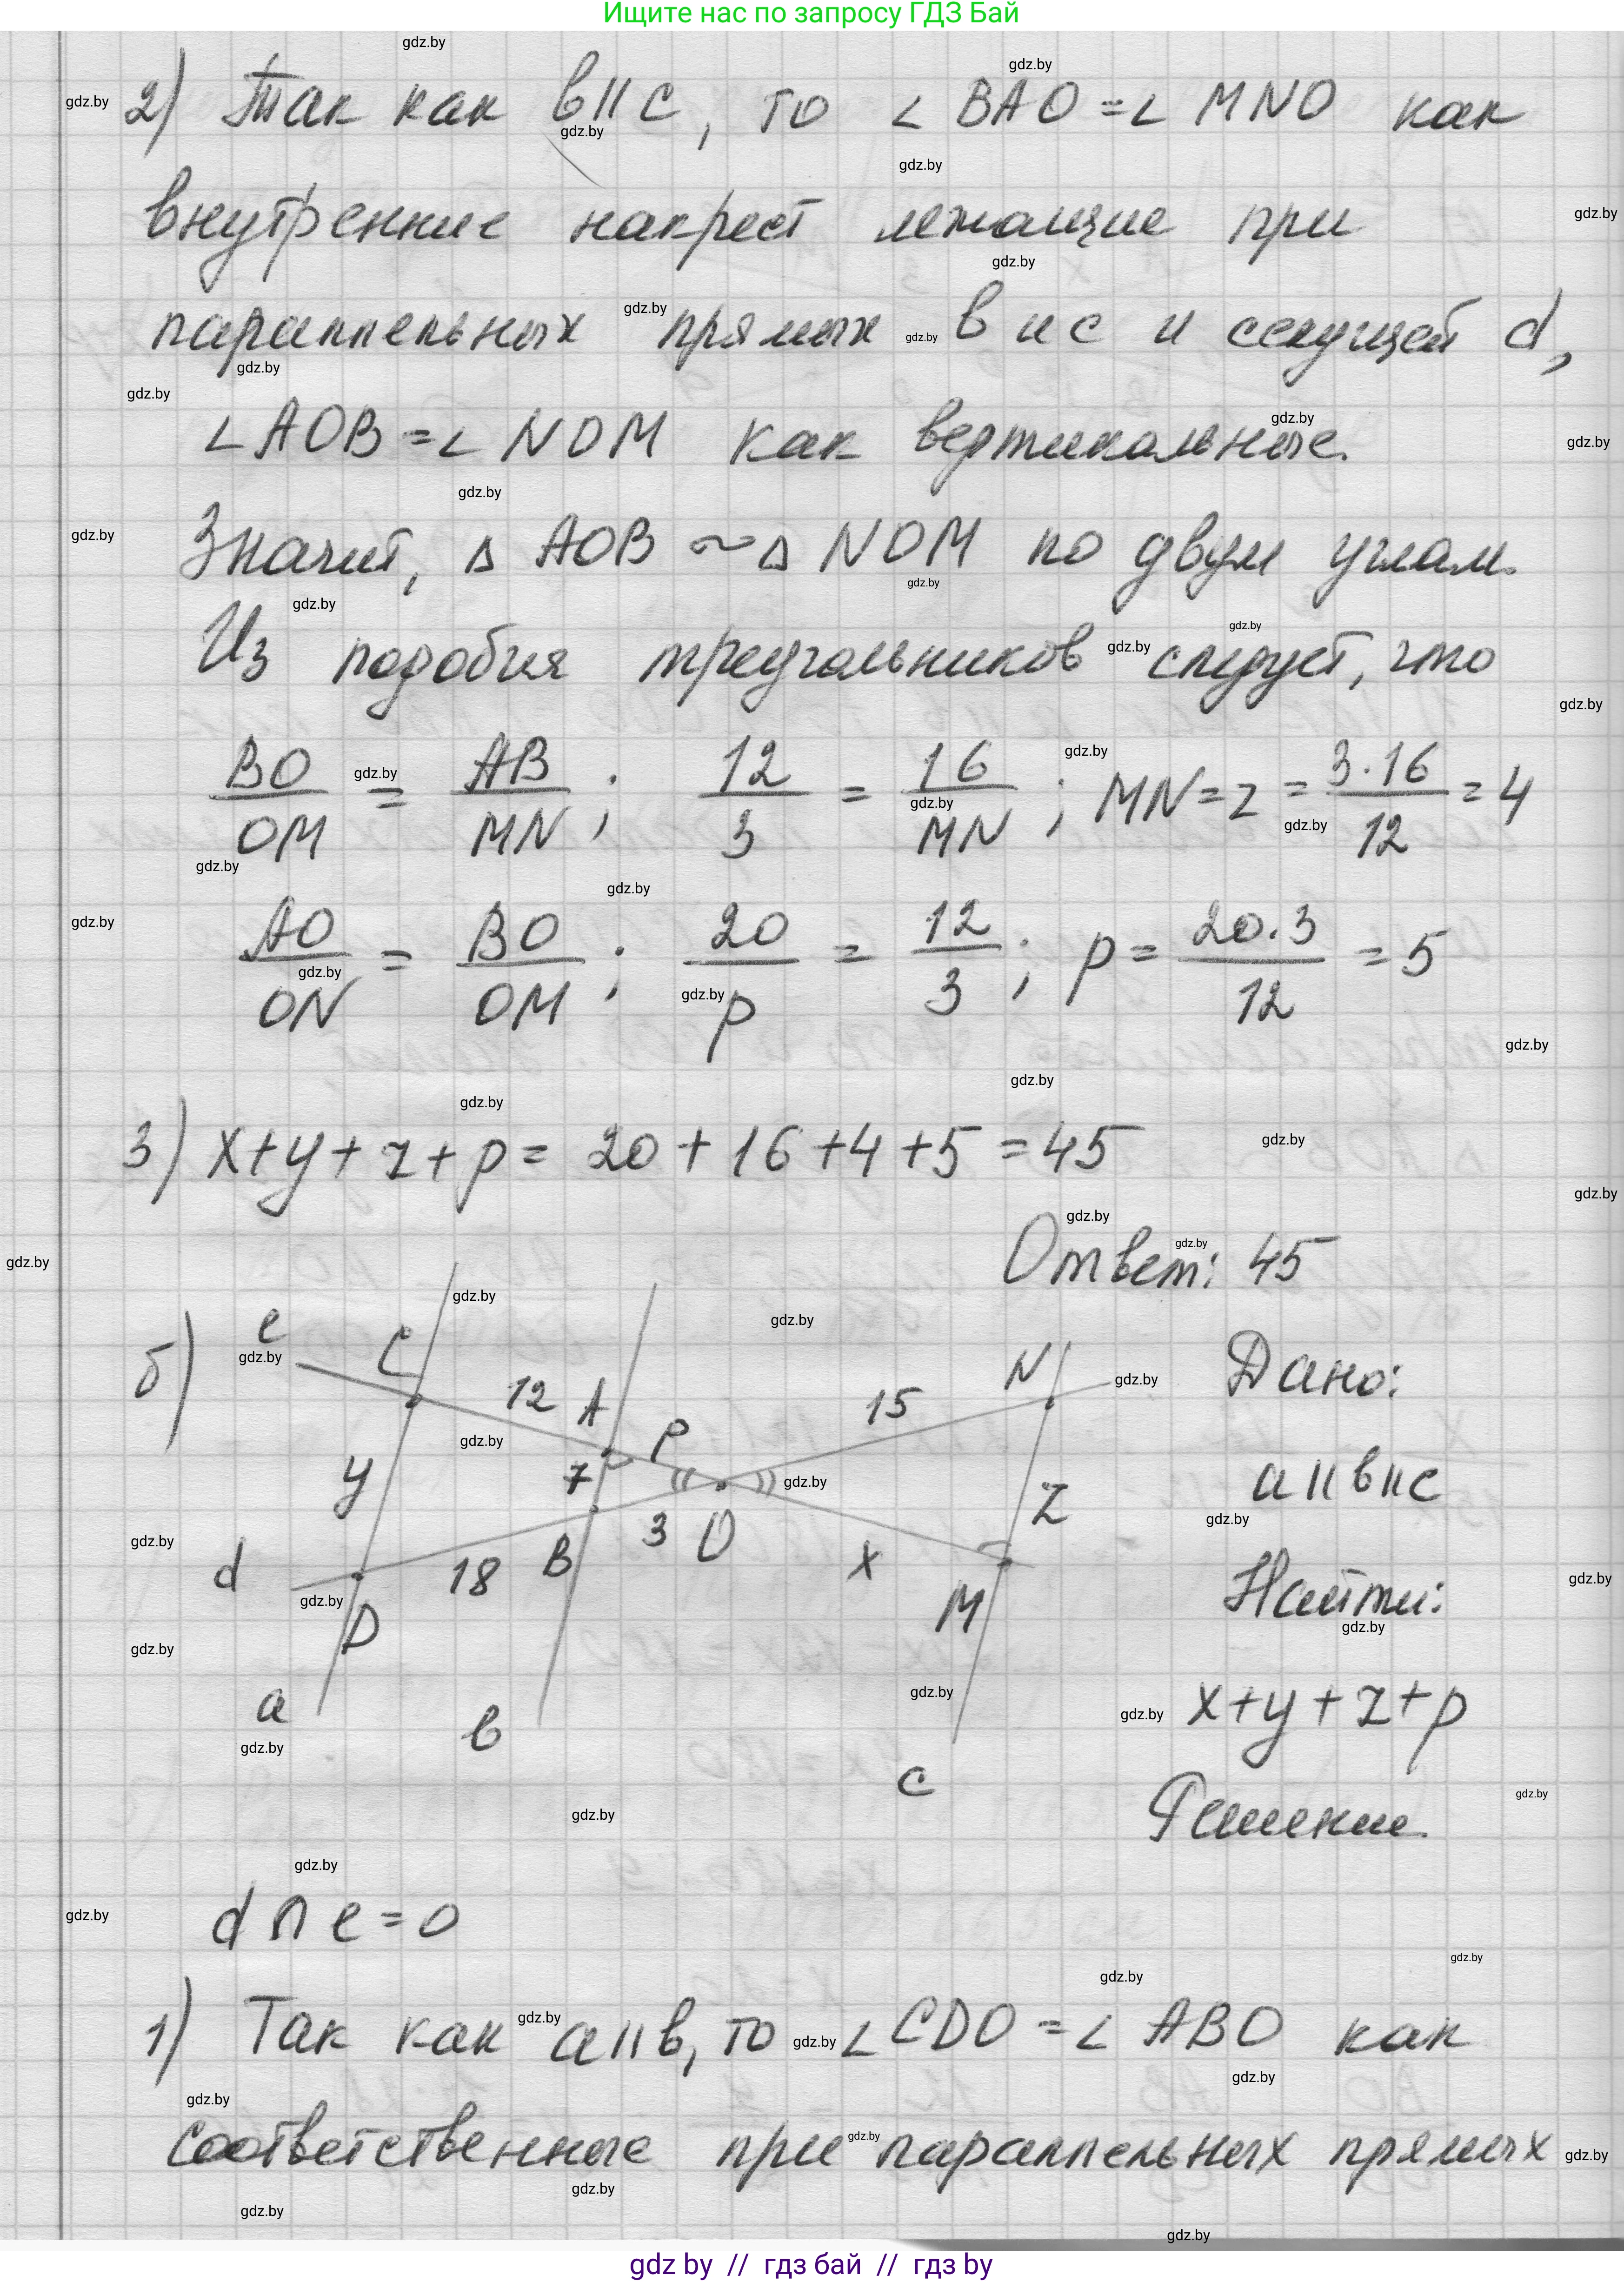 Ищите нас по запросу ГДЗ Бай
2) Так как в||с, то ∠ BAO = ∠ MNO как
внутренние накрест лежащие при
параллельных прямых в и с и секущей d,
∠AOB = ∠ NOM как вертикальные.
Значит, Δ AOB ~ Δ NOM по двум углам.
Из подобия треугольников следует, что
BO/OM = AB/MN; 12/3 = 16/MN; MN = z = 3·16/12 = 4
AO/ON = BO/OM; 20/p = 12/3; p = 20·3/12 = 5
3) x+y+z+p = 20+16+4+5 = 45
Ответ: 45
б) e C 12 A P 15 N Дано:
y 7 3 O Z a||в||с
d 18 B x M Найти:
D
a в с x+y+z+p
Решение.
d ∩ e = O
1) Так как a||в, то ∠CDO = ∠ABO как
соответственные при параллельных прямых
gdz by // гдз бай // гдз by
gdz.by